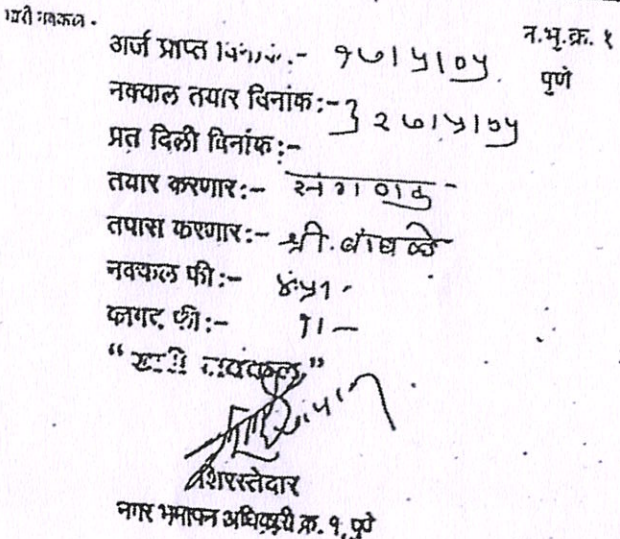 खरी नक्कल.
न.भु.क्र. १
पुणे
अर्ज प्राप्त दिनांक:- १७।५।०५
नक्कल तयार दिनांक:- } २७।५।०५
प्रत दिली दिनांक:-
तयार करणार:-
तपास करणार:- श्री.
नक्कल फी:-
कागद फी:-
“खरी नक्कल”
शिरस्तेदार
नगर भूमापन अधिकारी क्र. १, पुणे